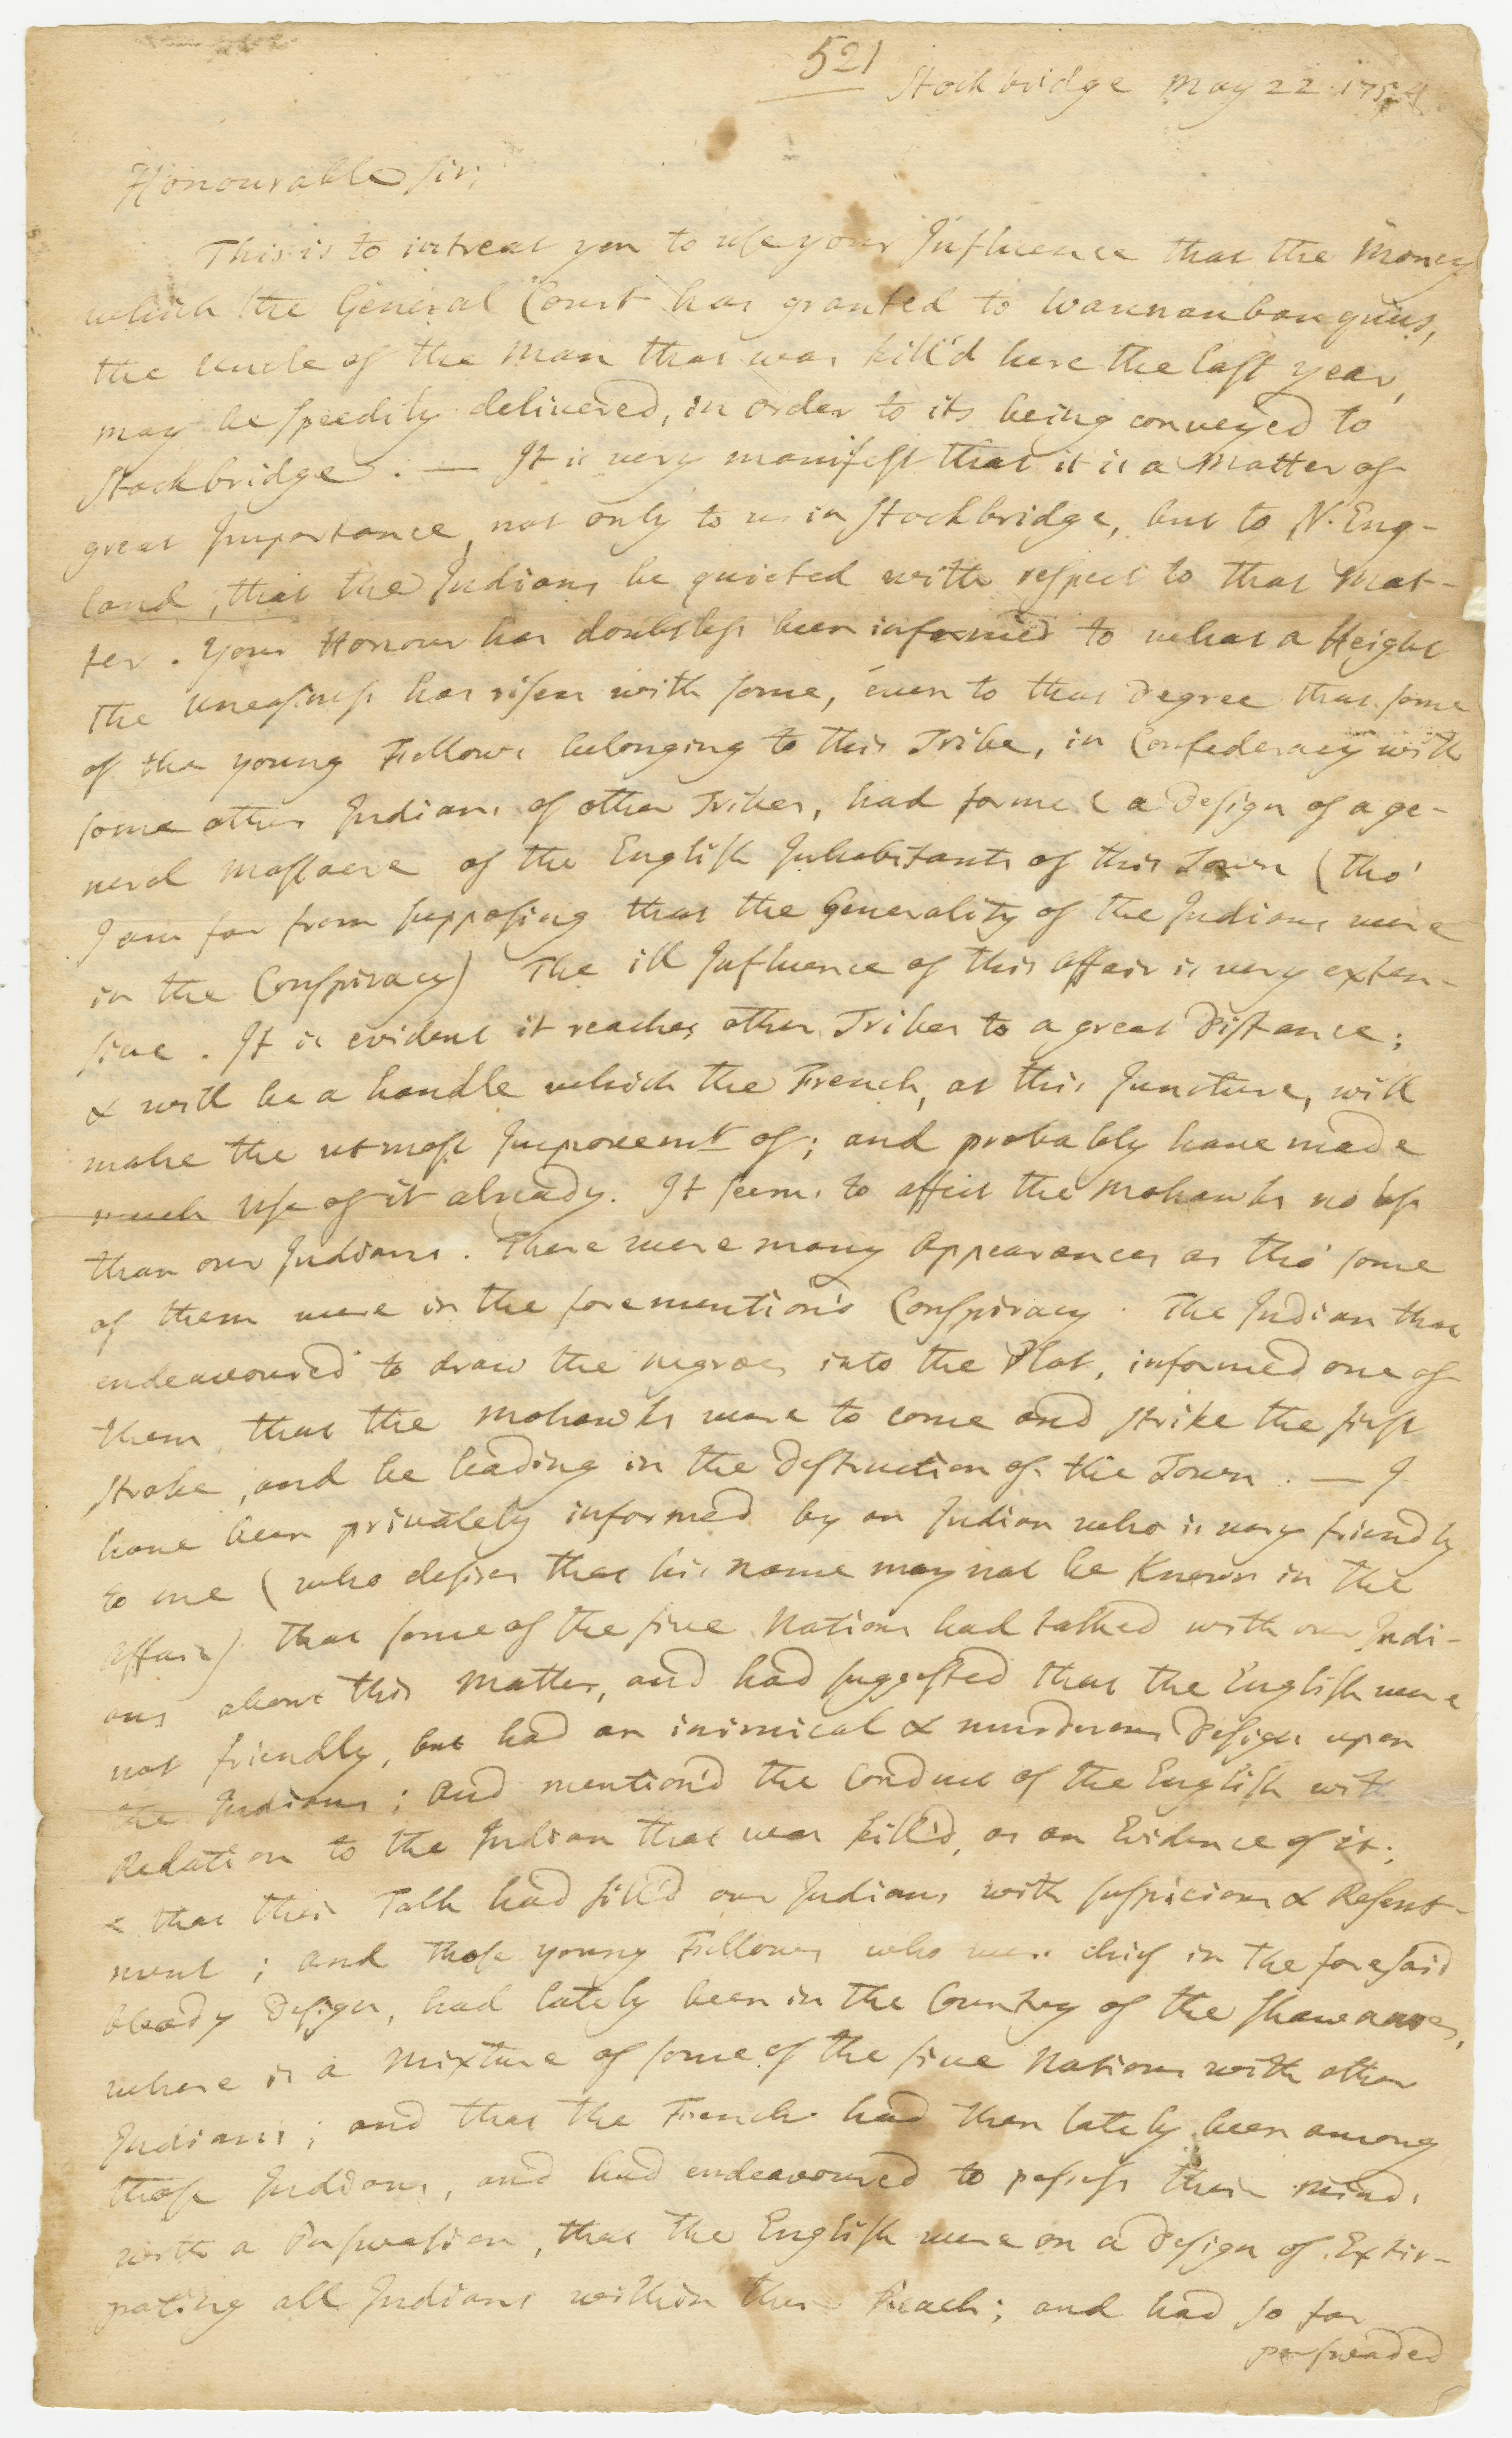 521
Stockbridge May 22. 1754
Honourable Sir;
This is to intreat you to use your Influence that the Money
which the General Court has granted to Wannaubauquus,
the Uncle of the Man that was kill'd here the last year,
may be speedily delivered, in order to its being conveyed to
Stockbridge. — It is very manifest that it is a Matter of
great Importance, not only to us in Stockbridge, but to N. Eng-
land, that the Indians be quieted with respect to that Mat-
ter. Your Honour has doubtless been informed to what a Height
the Uneasiness has risen with some, even to that Degree that some
of the young Fellows belonging to this Tribe, in Confederacy with
some other Indians of other Tribes, had formed a Design of a ge-
neral Massacre of the English Inhabitants of this Town (tho'
I am far from supposing that the Generality of the Indians were
in the Conspiracy) The ill Influence of this affair is very exten-
sive. It is evident it reaches other Tribes to a great Distance;
& will be a handle which the French, at this Juncture, will
make the utmost Improvemt of; and probably have made
much Use of it already. It seems to affect the Mohawks no less
than our Indians. There were many Appearances as tho' some
of them were in the forementiond Conspiracy. The Indian that
endeavoured to draw the negroes into the Plot, informed one of
them that the Mohawks were to come and strike the first
stroke, and be leading in the Destruction of the Town. — I
have been privately informed by an Indian who is very friendly
to me (who desires that his name may not be Known in the
affair) that some of the five Nations had talked with our Indi-
ans about this Matter, and had suggested that the English were
not friendly, but had an inimical & murderous Design upon
the Indians; and mention'd the Conduct of the English with
Relation to the Indian that was kill'd, as an Evidence of it;
& that their Talk had fill'd our Indians with suspicions & Resent-
ment; and those young Fellows who were chief in the foresaid
bloody Design, had lately been in the Country of the Shawanoes,
where is a Mixture of some of the five Nations with other
Indians; and that the French had then lately been among
those Indians, and had endeavoured to possess their minds
with a Perswasion, that the English were on a Design of Extir-
pating all Indians within their Reach; and had so far
perswaded